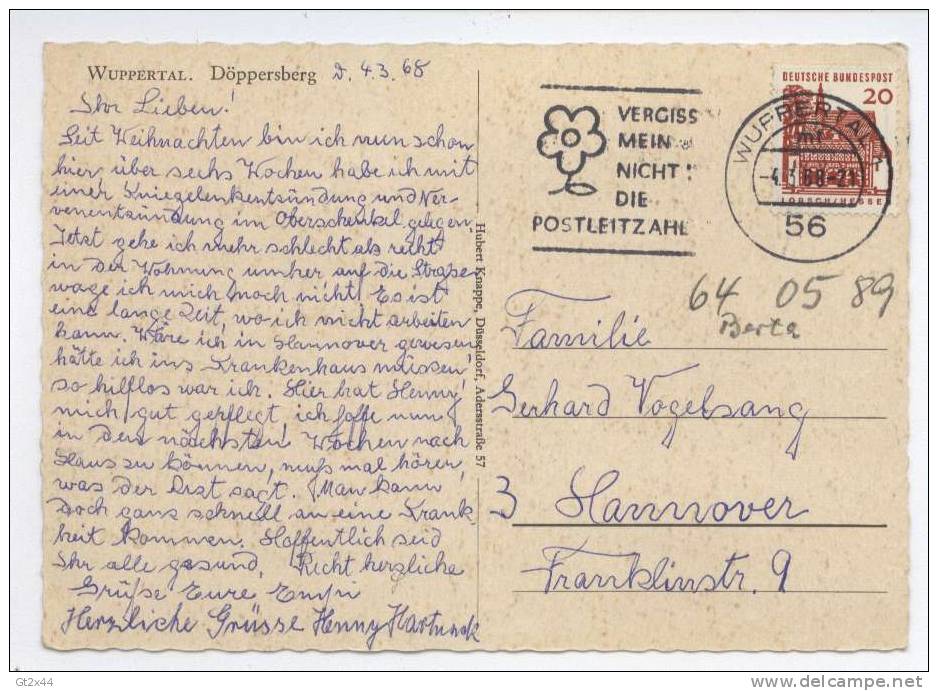 WUPPERTAL. Döppersberg d. 4.3.68
Ihr Lieben!
Seit Weihnachten bin ich nun schon
hier über sechs Wochen habe ich mit
einer Kniegelenkentzündung und Ner-
venentzündung im Oberschenkel gelegen.
Jetzt gehe ich mehr schlecht als recht
in der Wohnung umher auf die Straße
wage ich mich noch nicht. Es ist
eine lange Zeit, wo ich nicht arbeiten
kann. Wäre ich in Hannover gewesen
hätte ich ins Krankenhaus müssen
so hilflos war ich. Hier hat Henny
mich gut gepflegt ich hoffe nun
in den nächsten Wochen nach
Haus zu können, muß mal hören,
was der Arzt sagt. Man kann
doch ganz schnell an eine Krank
heit kommen. Hoffentlich seid
Ihr alle gesund. Recht herzliche
Grüße Eure
Herzliche Grüsse Henny Hartnack
Hubert Knappe, Düsseldorf, Adersstraße 57
VERGISS
MEIN
NICHT
DIE
POSTLEITZAHL
DEUTSCHE BUNDESPOST
20
LORSCH/HESSEN
WUPPERTAL 1
-4.3.68-21
56
64 05 89
Berta
Familie
Gerhard Vogelsang
3 Hannover
Franklinstr. 9
Gt2x44
www.delcampe.net